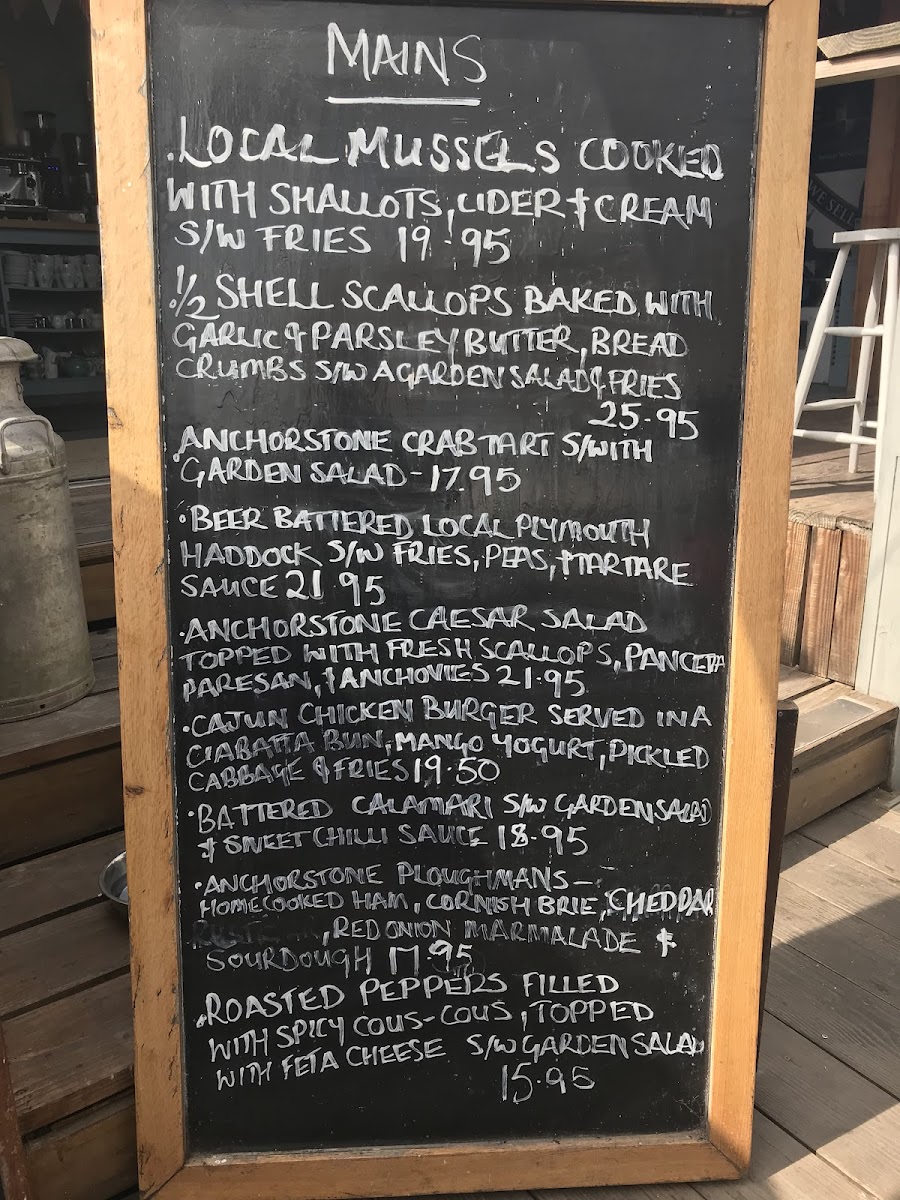 MAINS
. LOCAL MUSSELS COOKED
WITH SHALLOTS, CIDER & CREAM
S/W FRIES 19.95
. 1/2 SHELL SCALLOPS BAKED WITH
GARLIC & PARSLEY BUTTER, BREAD
CRUMBS S/W A GARDEN SALAD & FRIES
25.95
ANCHORSTONE CRAB TART S/WITH
GARDEN SALAD - 17.95
. BEER BATTERED LOCAL PLYMOUTH
HADDOCK S/W FRIES, PEAS, & TARTARE
SAUCE 21.95
. ANCHORSTONE CAESAR SALAD
TOPPED WITH FRESH SCALLOPS, PANCETA
PARESAN, & ANCHOVIES 21.95
. CAJUN CHICKEN BURGER SERVED IN A
CIABATTA BUN, MANGO YOGURT, PICKLED
CABBAGE & FRIES 19.50
. BATTERED CALAMARI S/W GARDEN SALAD
& SWEET CHILLI SAUCE 18.95
. ANCHORSTONE PLOUGHMANS -
HOMECOOKED HAM, CORNISH BRIE, CHEDDAR
, RED ONION MARMALADE &
SOURDOUGH 17.95
. ROASTED PEPPERS FILLED
WITH SPICY COUS-COUS, TOPPED
WITH FETA CHEESE S/W GARDEN SALAD
15.95
WE SELL